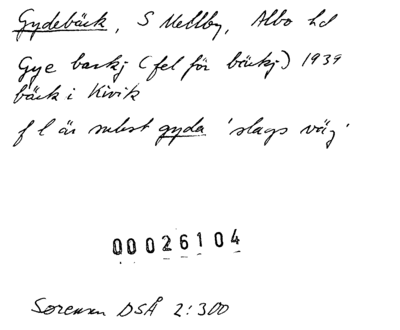 Gydebäck, S Mellby, Albo hd
Gye backj (fel för bäckj) 1939
bäck i Kivik
f l är subst gyda 'slags väg'
00026104
Sørensen DSÅ 2:300